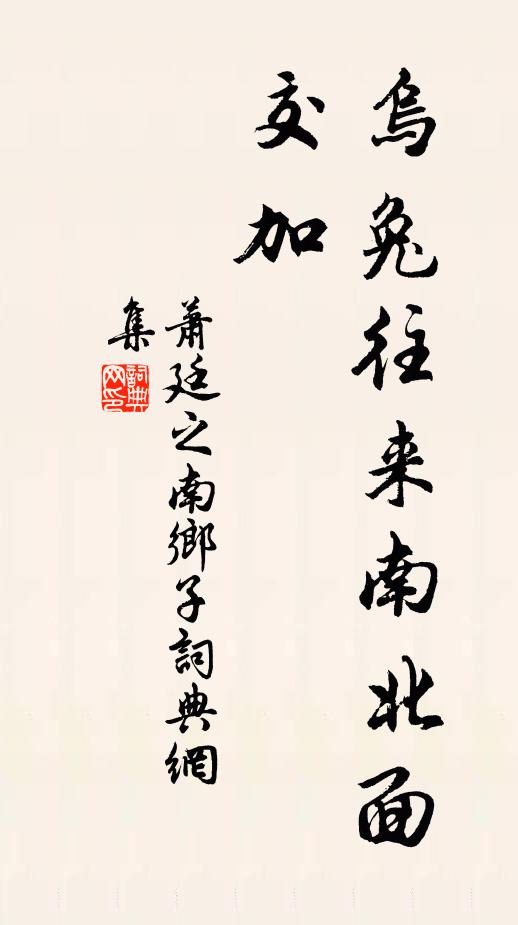 烏兔往来南北面
交加
蕭廷之南鄉子詞典網
集
詞典
网印